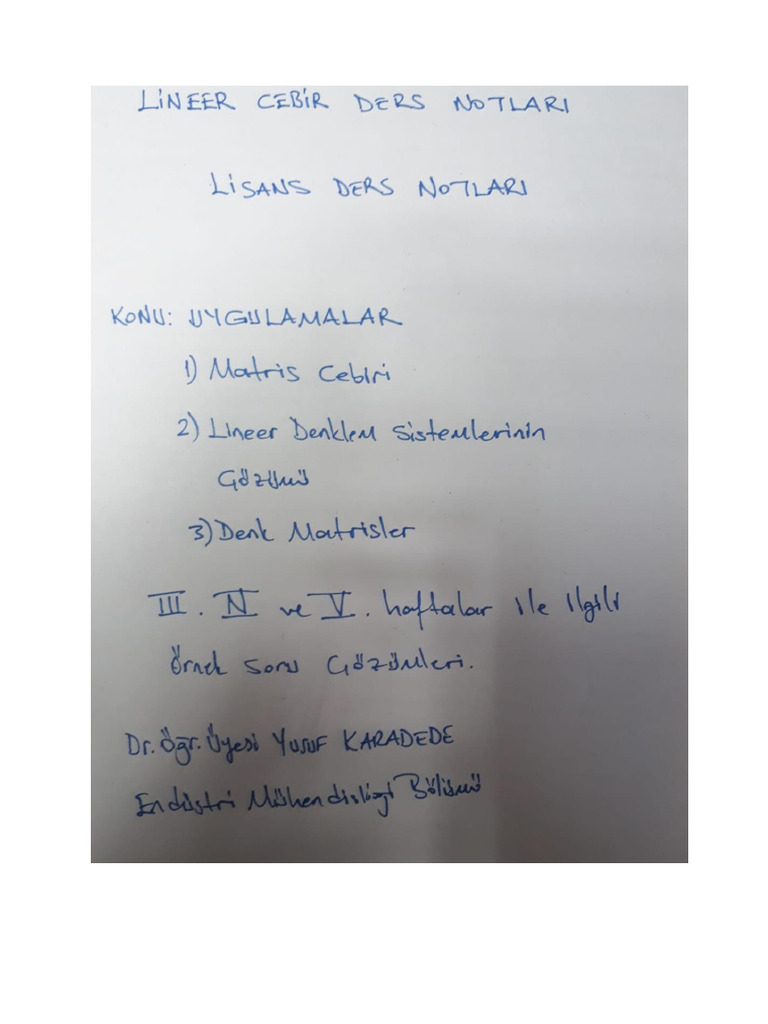 LİNEER CEBİR DERS NOTLARI
LİSANS DERS NOTLARI
KONU: UYGULAMALAR
1) Matris Cebiri
2) Lineer Denklem Sistemlerinin
Çözümü
3) Denk Matrisler
III. IV ve V. haftalar ile ilgili
Örnek Soru Çözümleri.
Dr. Öğr. Üyesi Yusuf KARADEDE
Endüstri Mühendisliği Bölümü